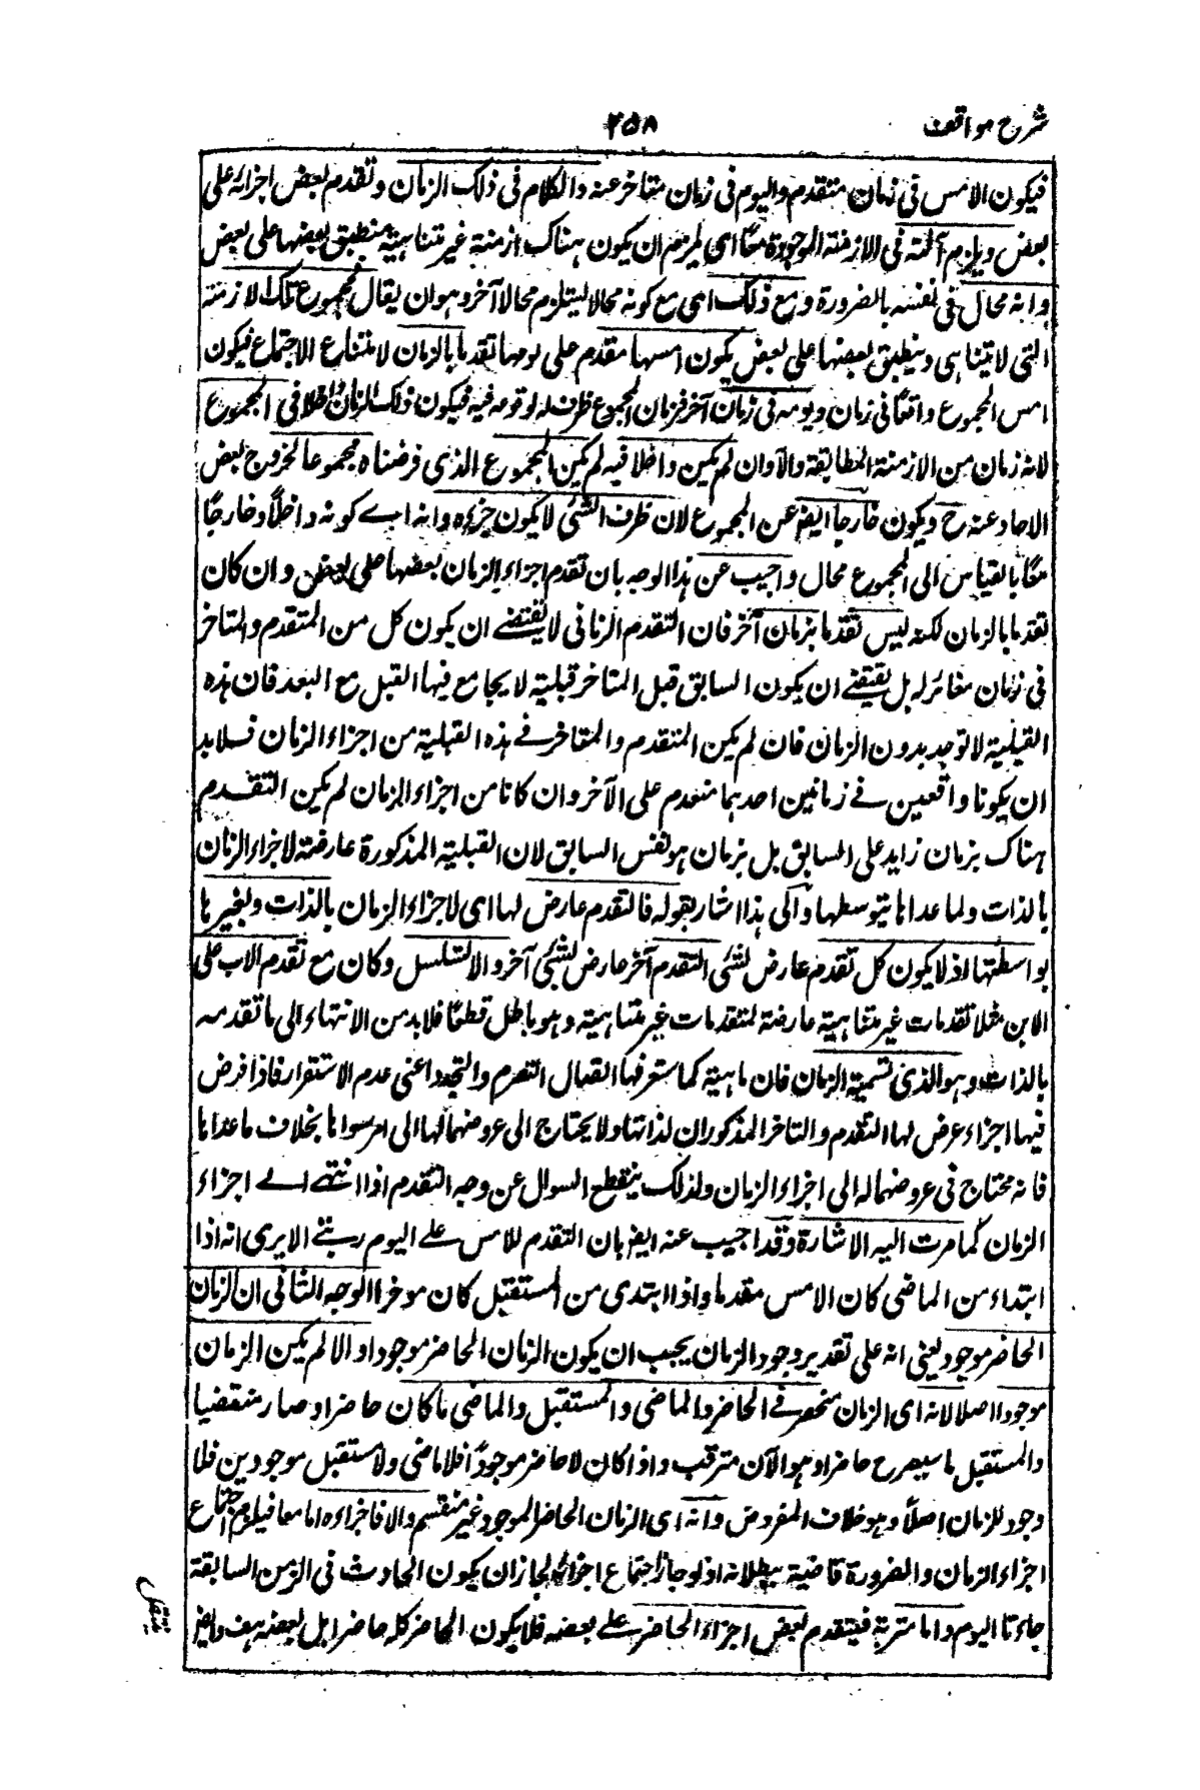 شرح مواقف
۲۵۸
فيكون الامس فى زمان متقدم واليوم فى زمان متاخر عنه والكلام فى ذلك الزمان وتقدم بعض اجزائه على
بعض ويلزم التسلسل فى الازمنة الموجودة معًا اى يلزم ان يكون هناك ازمنة غير متناهية منطبق بعضها على بعض
وانه محال فى نفسه بالضرورة ومع ذلك اى مع كونه محالا ليستلزم محالا آخر وهو ان يقال مجموع تلك الازمنة
التى لا تتناهى وينطبق بعضها على بعض يكون امسها مقدم على يومها تقدما بالزمان لامتناع الاجتماع فيكون
امس المجموع واقعًا فى زمان ويومه فى زمان آخر فزمان المجموع ظرف له لوقوعه فيه فيكون ذلك الزمان داخلا فى المجموع
لانه زمان من الازمنة المتطابقة والا وان لم يكن داخلا فيه لم يكن المجموع الذى فرضناه مجموعا لخروج بعض
الاحاد عنه ح ويكون خارجا ايضا عن المجموع لان ظرف الشئ لا يكون جزءه وانه اے كونه داخلاً وخارجًا
معًا بالقياس الى المجموع محال واجيب عن هذا الوجه بان تقدم اجزاء الزمان بعضها على بعض وان كان
تقدما بالزمان لكنه ليس تقدما بزمان آخر فان التقدم الزمانى لا يقتضے ان يكون كل من المتقدم والمتاخر
فى زمان مغائر له بل يقتضے ان يكون السابق قبل المتاخر قبلية لا يجامع فيها القبل مع البعد فان هذه
القبلية لا توجد بدون الزمان فان لم يكن المتقدم والمتاخر فے هذه القبلية من اجزاء الزمان فلا بد
ان يكونا واقعين فے زمانين احدهما متقدم على الآخر وان كانا من اجزاء الزمان لم يكن التقدم
هناك بزمان زايد على السابق بل بزمان هو نفس السابق لان القبلية المذكورة عارضة لاجزاء الزمان
بالذات ولما عداها بتوسطها والى هذا اشار بقوله فالتقدم عارض لها اى لاجزاء الزمان بالذات ولغيرها
بواسطتها اذ لا يكون كل تقدم عارض لشئ التقدم آخر عارض لشئ آخر والا لتسلسل وكان مع تقدم الاب على
الابن مثلا تقدمات غير متناهية عارضة لمتقدمات غير متناهية وهو باطل قطعًا فلا بد من الانتهاء الى ما تقدمه
بالذات وهو الذى نسميه الزمان فان ماهيته كما ستعرفها اتصال التصرم والتجدد اعنى عدم الاستقرار فاذا فرض
فيها اجزاء عرض لها التقدم والتاخر المذكوران لذاتها ولا يحتاج الى عروضهما لها الى امر سواها بخلاف ما عداها
فانه محتاج فى عروضهما له الى اجزاء الزمان ولذلك ينقطع السوال عن وجه التقدم اذا انتهے الے اجزاء
الزمان كما مرت اليه الاشارة وقد اجيب عنه ايضا بان التقدم للامس علے اليوم رتبے الا يرى انه اذا
ابتداء من الماضى كان الامس مقدما واذا ابتدى من المستقبل كان موخرا الوجه الثانى ان الزمان
الحاضر موجود يعنى انه على تقدير وجود الزمان يجب ان يكون الزمان الحاضر موجودا والا لم يكن الزمان
موجودا اصلا لانه اى الزمان منحصر فے الحاضر والماضى والمستقبل والماضى ما كان حاضرا وصار منقضيا
والمستقبل ما سيصير ح حاضرا وهو الآن مترقب واذا كان لا حاضر موجودًا فلا ماضى ولا مستقبل موجودين فلا
وجود للزمان اصلاً وهو خلاف المفروض وانه اى الزمان الحاضر الموجود غير منقسم والا فاجزاءه اما معا فيلزم اجتماع
اجزاء الزمان والضرورة قاضية ببطلانه اذ لو جاز اجتماع اجزائه لجاز ان يكون الحادث فى الزمن السابقة
حادثا اليوم واما مترتبة فيتقدم بعض اجزاء الحاضر علے بعضه فلا يكون الحاضر كله حاضرا بل بعضه هف وايضا